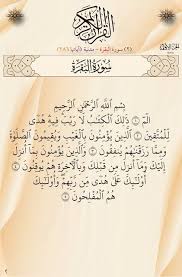 القرآن الكريم
(٢) سورة البقرة - مدنية (آياتها ٢٨٦)
سُورَةُ البَقَرَةِ
بِسْمِ اللَّهِ الرَّحْمَٰنِ الرَّحِيمِ
الٓمٓ ۝ ذَٰلِكَ الْكِتَابُ لَا رَيْبَ فِيهِ هُدًى
لِّلْمُتَّقِينَ ۝ الَّذِينَ يُؤْمِنُونَ بِالْغَيْبِ وَيُقِيمُونَ الصَّلَاةَ
وَمِمَّا رَزَقْنَاهُمْ يُنفِقُونَ ۝ وَالَّذِينَ يُؤْمِنُونَ بِمَا أُنزِلَ
إِلَيْكَ وَمَا أُنزِلَ مِن قَبْلِكَ وَبِالْآخِرَةِ هُمْ يُوقِنُونَ ۝
أُولَٰئِكَ عَلَىٰ هُدًى مِّن رَّبِّهِمْ وَأُولَٰئِكَ
هُمُ الْمُفْلِحُونَ ۝
٢